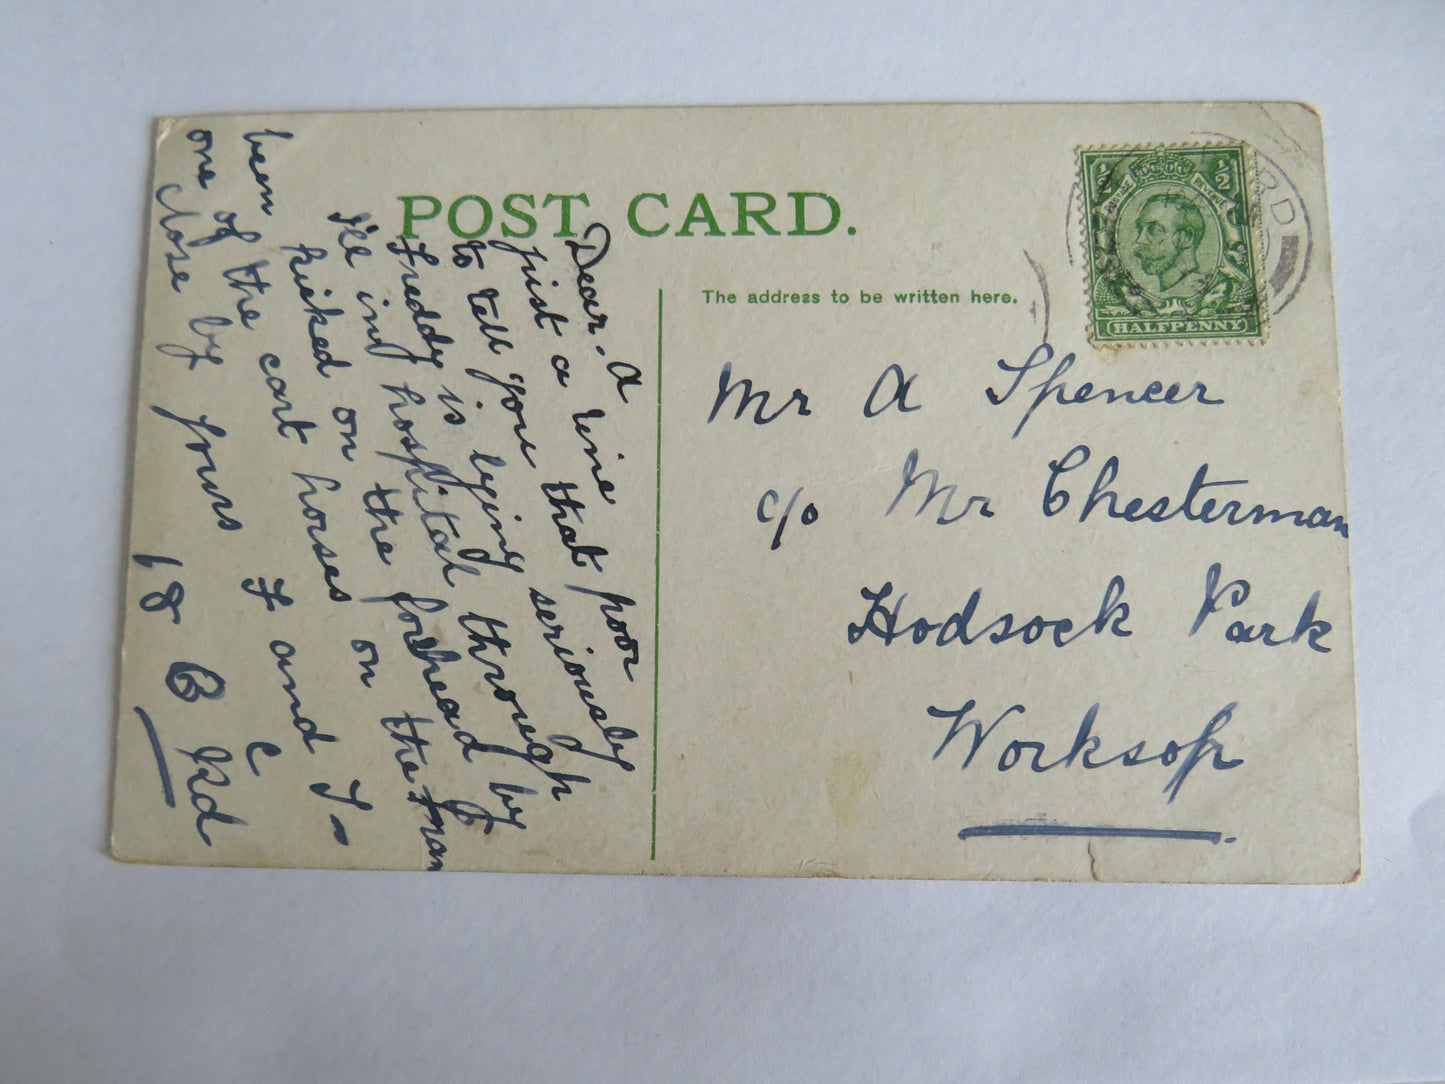 POST CARD.
The address to be written here.
½ ½
POSTAGE REVENUE
HALFPENNY
RD
Mr A Spencer
c/o Mr Chesterman
Hodsock Park
Worksop
Dear. A
just a line
to tell you that poor
Freddy is lying seriously
ill in hospital through
kicked on the forehead by
been
one of the cart horses on the
close by yours F and J
18 B Rd